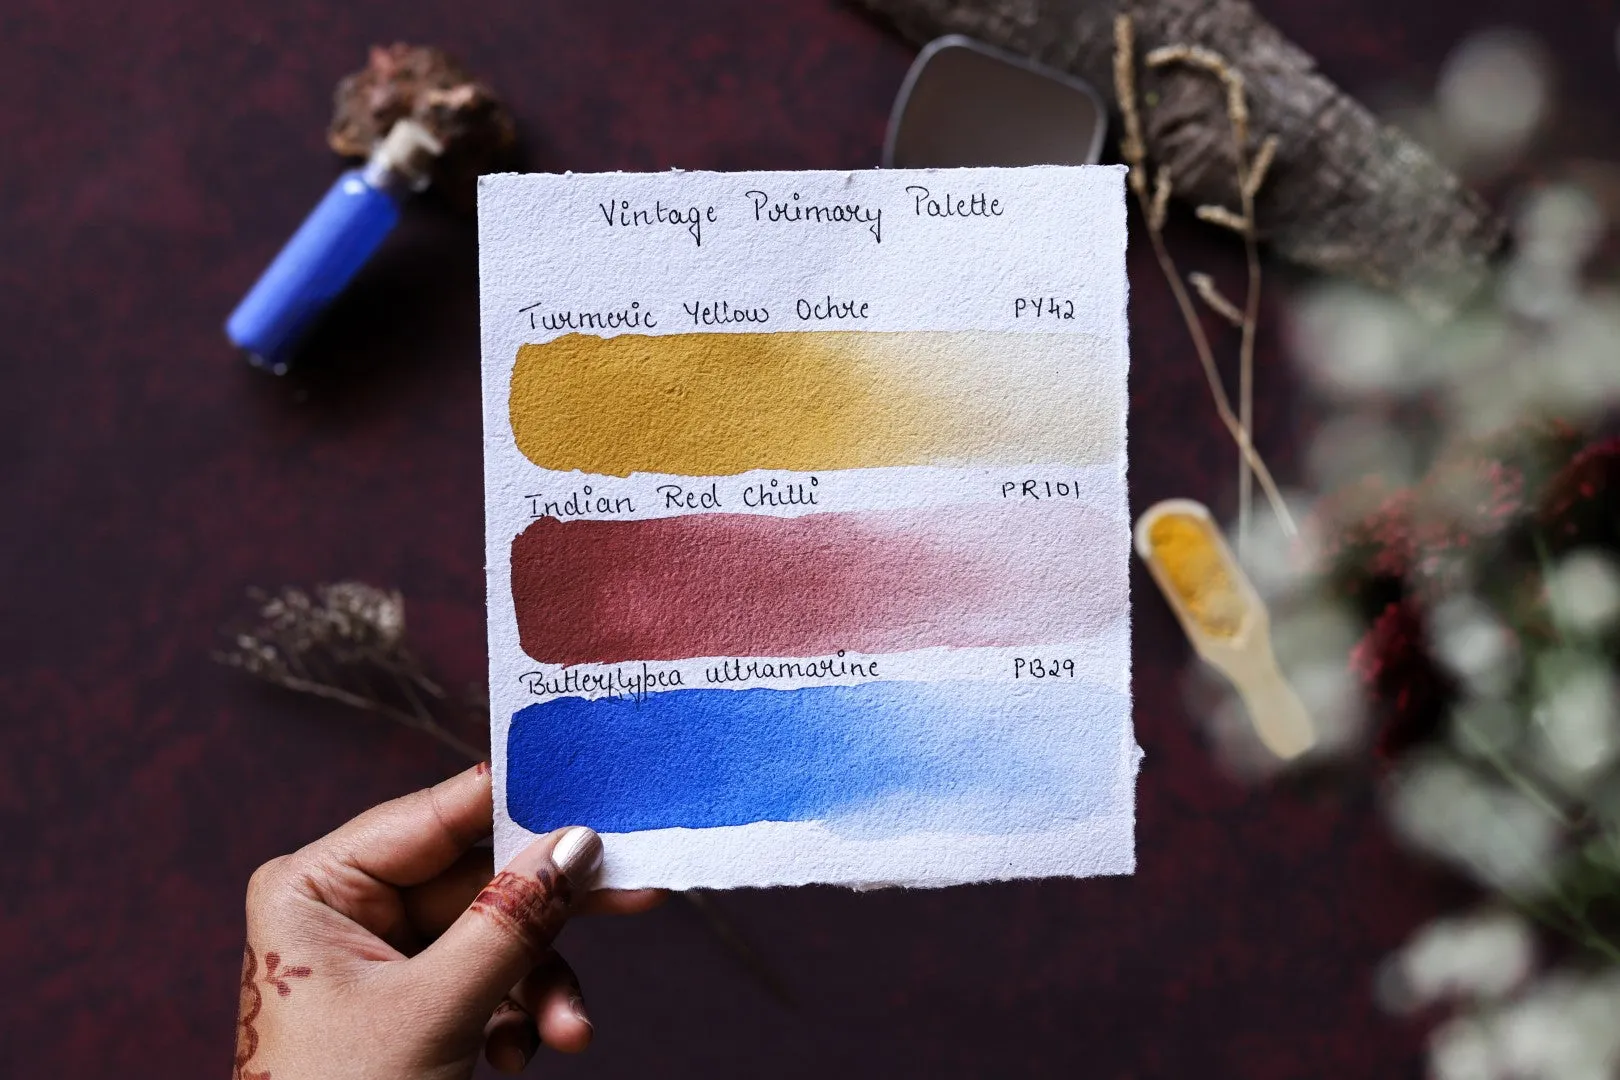 Vintage Primary Palette
Turmeric Yellow Ochre PY42
Indian Red Chilli PR101
Butterflypea ultramarine PB29